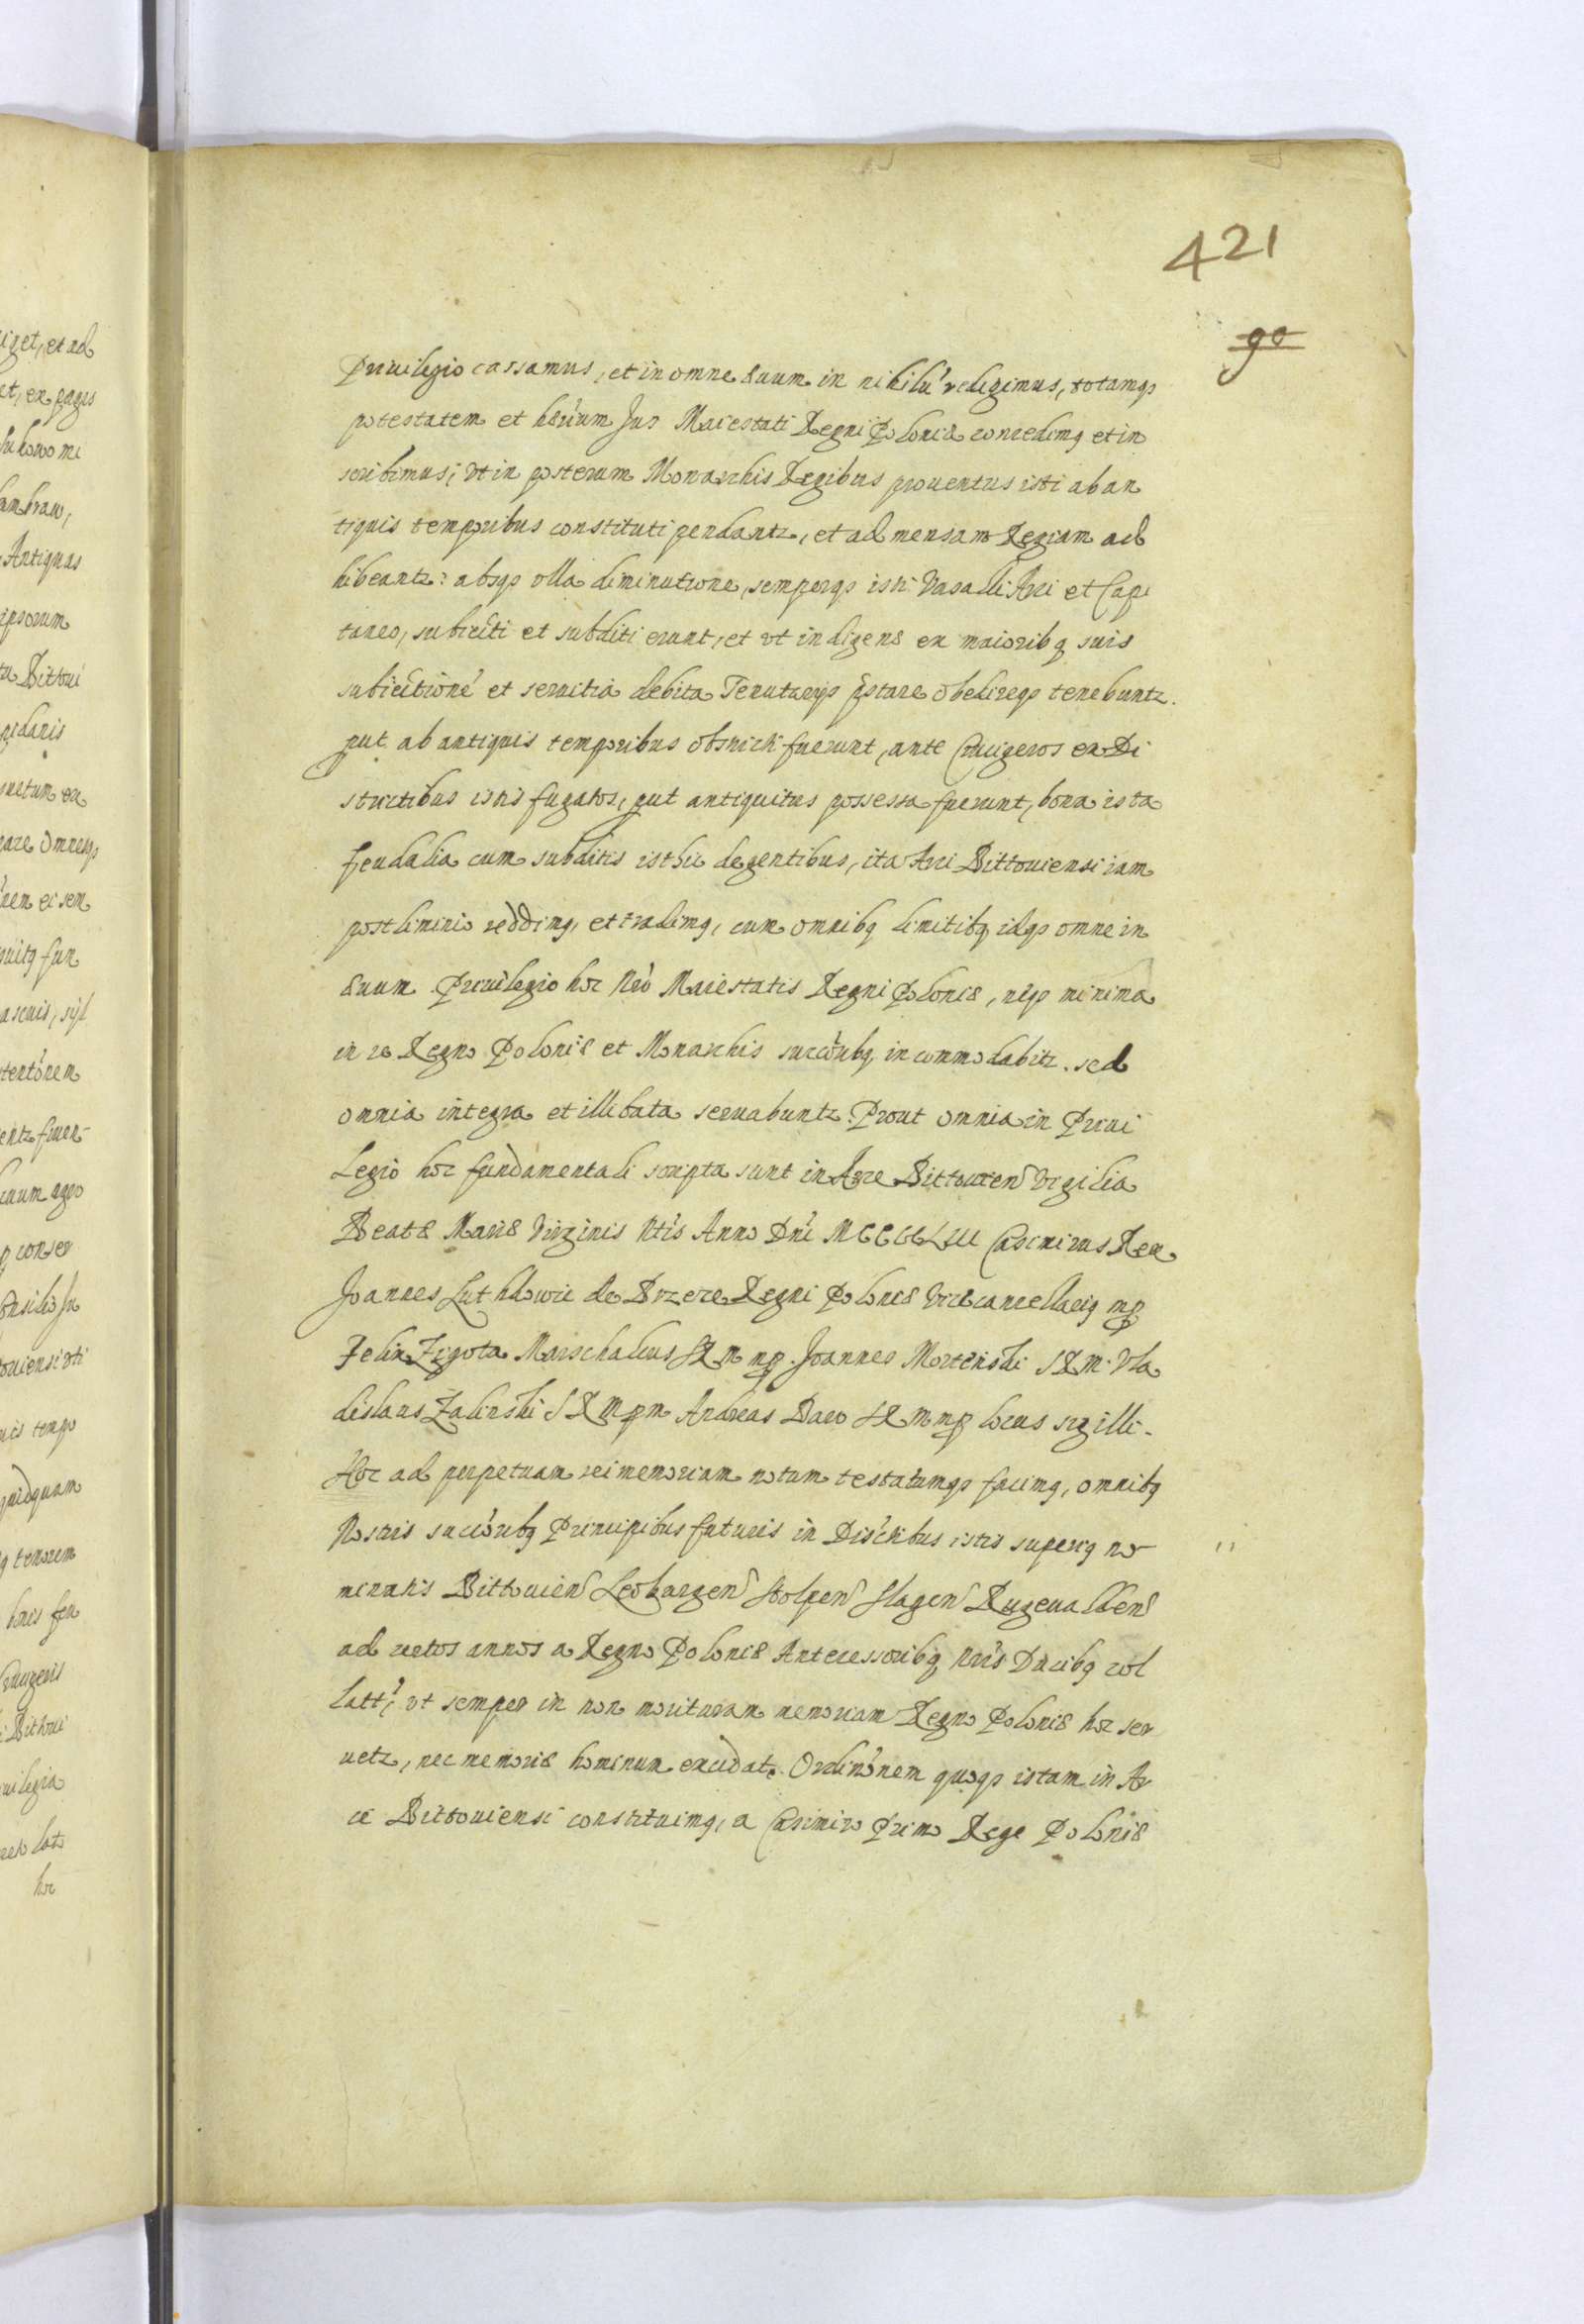 421
90
Priuilegio cassamus, et in omne æuum in nihilu' redigimus, totamq3
potestatem et h&rium Jus Maiestati Regni Poloniæ concedimq et in
scribimus; vt in posterum Monarchis Regibus prouentus isti ab an
tiquis temporibus constituti pendantr, et ad mensam Regiam ad
hibeantr: absq3 vlla diminutione, semperq3 isti Vasalli Arci et Capi
taneo, subiecti et subditi erunt, et vt indigenæ ex maioribq suis
subiectione' et seruitia debita Tenutarijs pstare obedireq3 tenebuntr.
put ab antiquis temporibus obstricti fuerunt, ante Crucigeros ex Di
strictibus istis fugatos, put antiquitus possessa fuerunt, bona ista
feudalia cum subditis isthic degentibus, ita Arci Bittouiensi iam
postliminio reddimq, et tradimq, cum omnibq limitibq idq3 omne in
æuum Priuilegio hoc Nrō Maiestatis Regni Poloniæ, neq3 minima
in re Regno Poloniæ et Monarchis succ'oribq incommodabitr. sed
omnia integra et illibata seruabuntr. Prout omnia in Priui
legio hoc fundamentali scripta sunt in Arce Bittouien Vigilia
Beatæ Mariæ Virginis Nti's Anno Dni MCCCCLIII Casimirus Rex
Joannes Luthkowic de Brzeze Regni Poloniæ Vicecancellariq mp
Felix Zigota Marschalcus SRM mp. Joannes Mortenski SRM. Vla
dislaus Zalinski SRM pm Andreas Baro SRM mp locus sigilli.
Hoc ad perpetuam rei memoriam notum testatumq3 facimq, omnibq
Nostris succ'oribq Principibus futuris in Dis'ctibus istis superiq no
minatis Bittouien Leoburgen Stolpen Slagen Rugeualden
ad certos annos a Regno Poloniæ Antecessoribq Nri's Ducibq col
lati', vt semper in non morituram memoriam Regno Poloniæ hoc ser
uetr, nec memoriæ hominum excidat. Ordina'onem quoq3 istam in Ar
ce Bittouiensi constituimq, a Casimiro Primo Rege Poloniæ